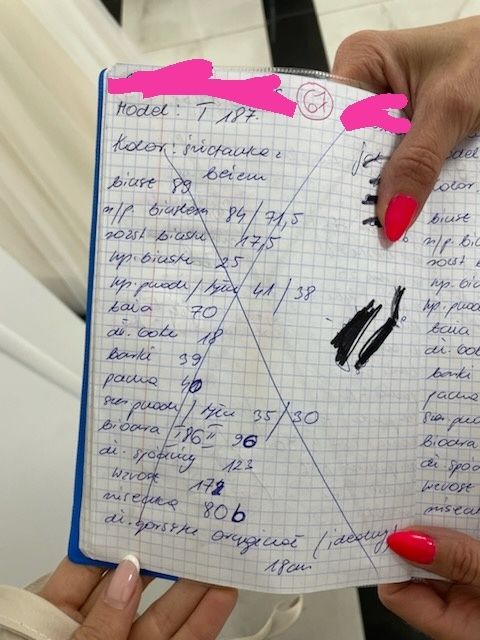 67
Model: T 187.
Kolor: śmietanka z
beżem
biust 89
n/p. biustem 84/71,5
rozst biustu 17,5
wp. biustu 25
wp. przodu / tyłu 41/38
talia 70
dł. boku 18
barki 39
pacha 40
szer przodu / tyłu 35/30
biodra I 86 II 96
dł. spódnicy 123
wzrost 172
miseczka 80b
dł. gorsetu oryginał (idealny)
18cm
kolor.
biust
n/p. biu
rozst bi
wp. biu
wp. pr
talia
dł. bok
barki
pacha
szer pr
biodra
dł. spód
wzrost
misecz